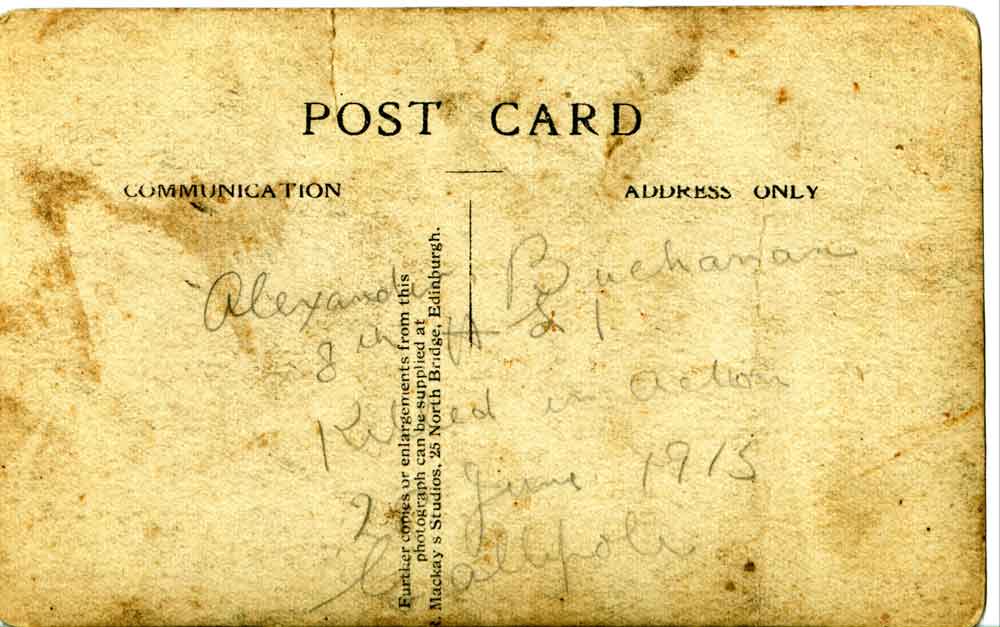 POST CARD
COMMUNICATION
ADDRESS ONLY
Alexander Buchanan
8th H L I
Killed in action
June 1915
Gallipoli
Further copies or enlargements from this
photograph can be supplied at
R. Mackay's Studios, 25 North Bridge, Edinburgh.